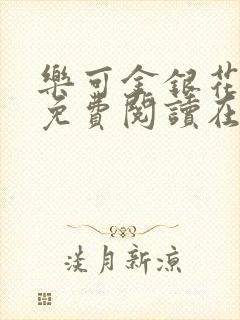 樂可金銀花
免費閱讀在
淡月新涼